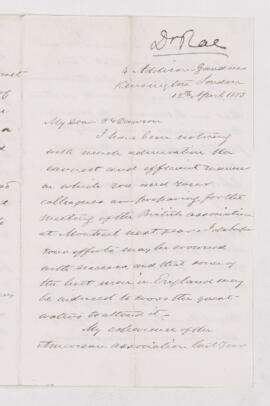 Dr Rae
4 Addison Gardens
Kensington London
12th April 1883
My Dear Dr Dawson
I have been noticing
with much admiration the
earnest and efficient manner
in which you and your
colleagues are preparing for the
meeting of the British Association
at Montreal next year. I do hope
your efforts may be crowned
with success and that some of
the best men in England may
be induced to cross the great
waters to attend it.
My experience of the
American Association last year